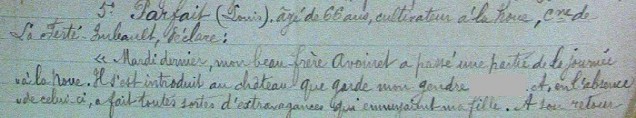 5° Parfait (Louis), âgé de 66 ans, cultivateur à la Noue, Cne de
La Ferté-Imbault, déclare :
« Mardi dernier, mon beau-frère Avoinet a passé une partie de la journée
» à la Noue. Il s'est introduit au château que garde mon gendre et, en l'absence
» de celui-ci, a fait toutes sortes d'extravagances qui ennuyaient ma fille. A son retour